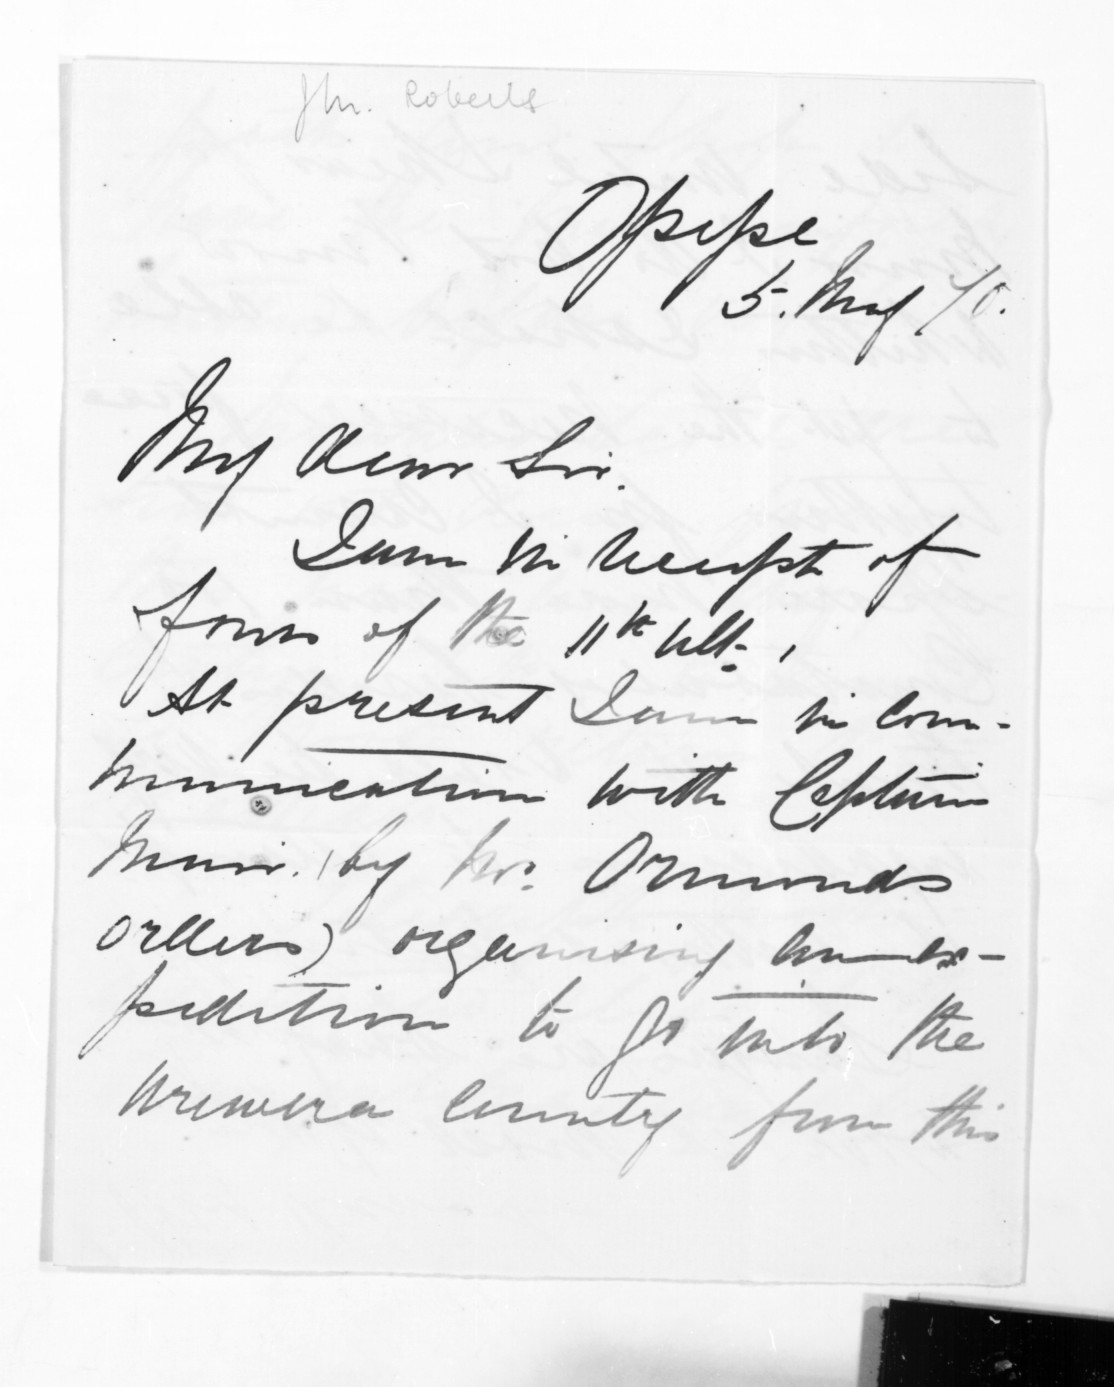 Jhn. Roberts
Opepe
5. May 70.
My dear Sir.
I am in receipt of
yours of the 11th Ult.,
At present I am in com-
munication with Captain
(by Mr. Ormonds
orders) organising an ex-
pedition to go into the
Urewera Country from this